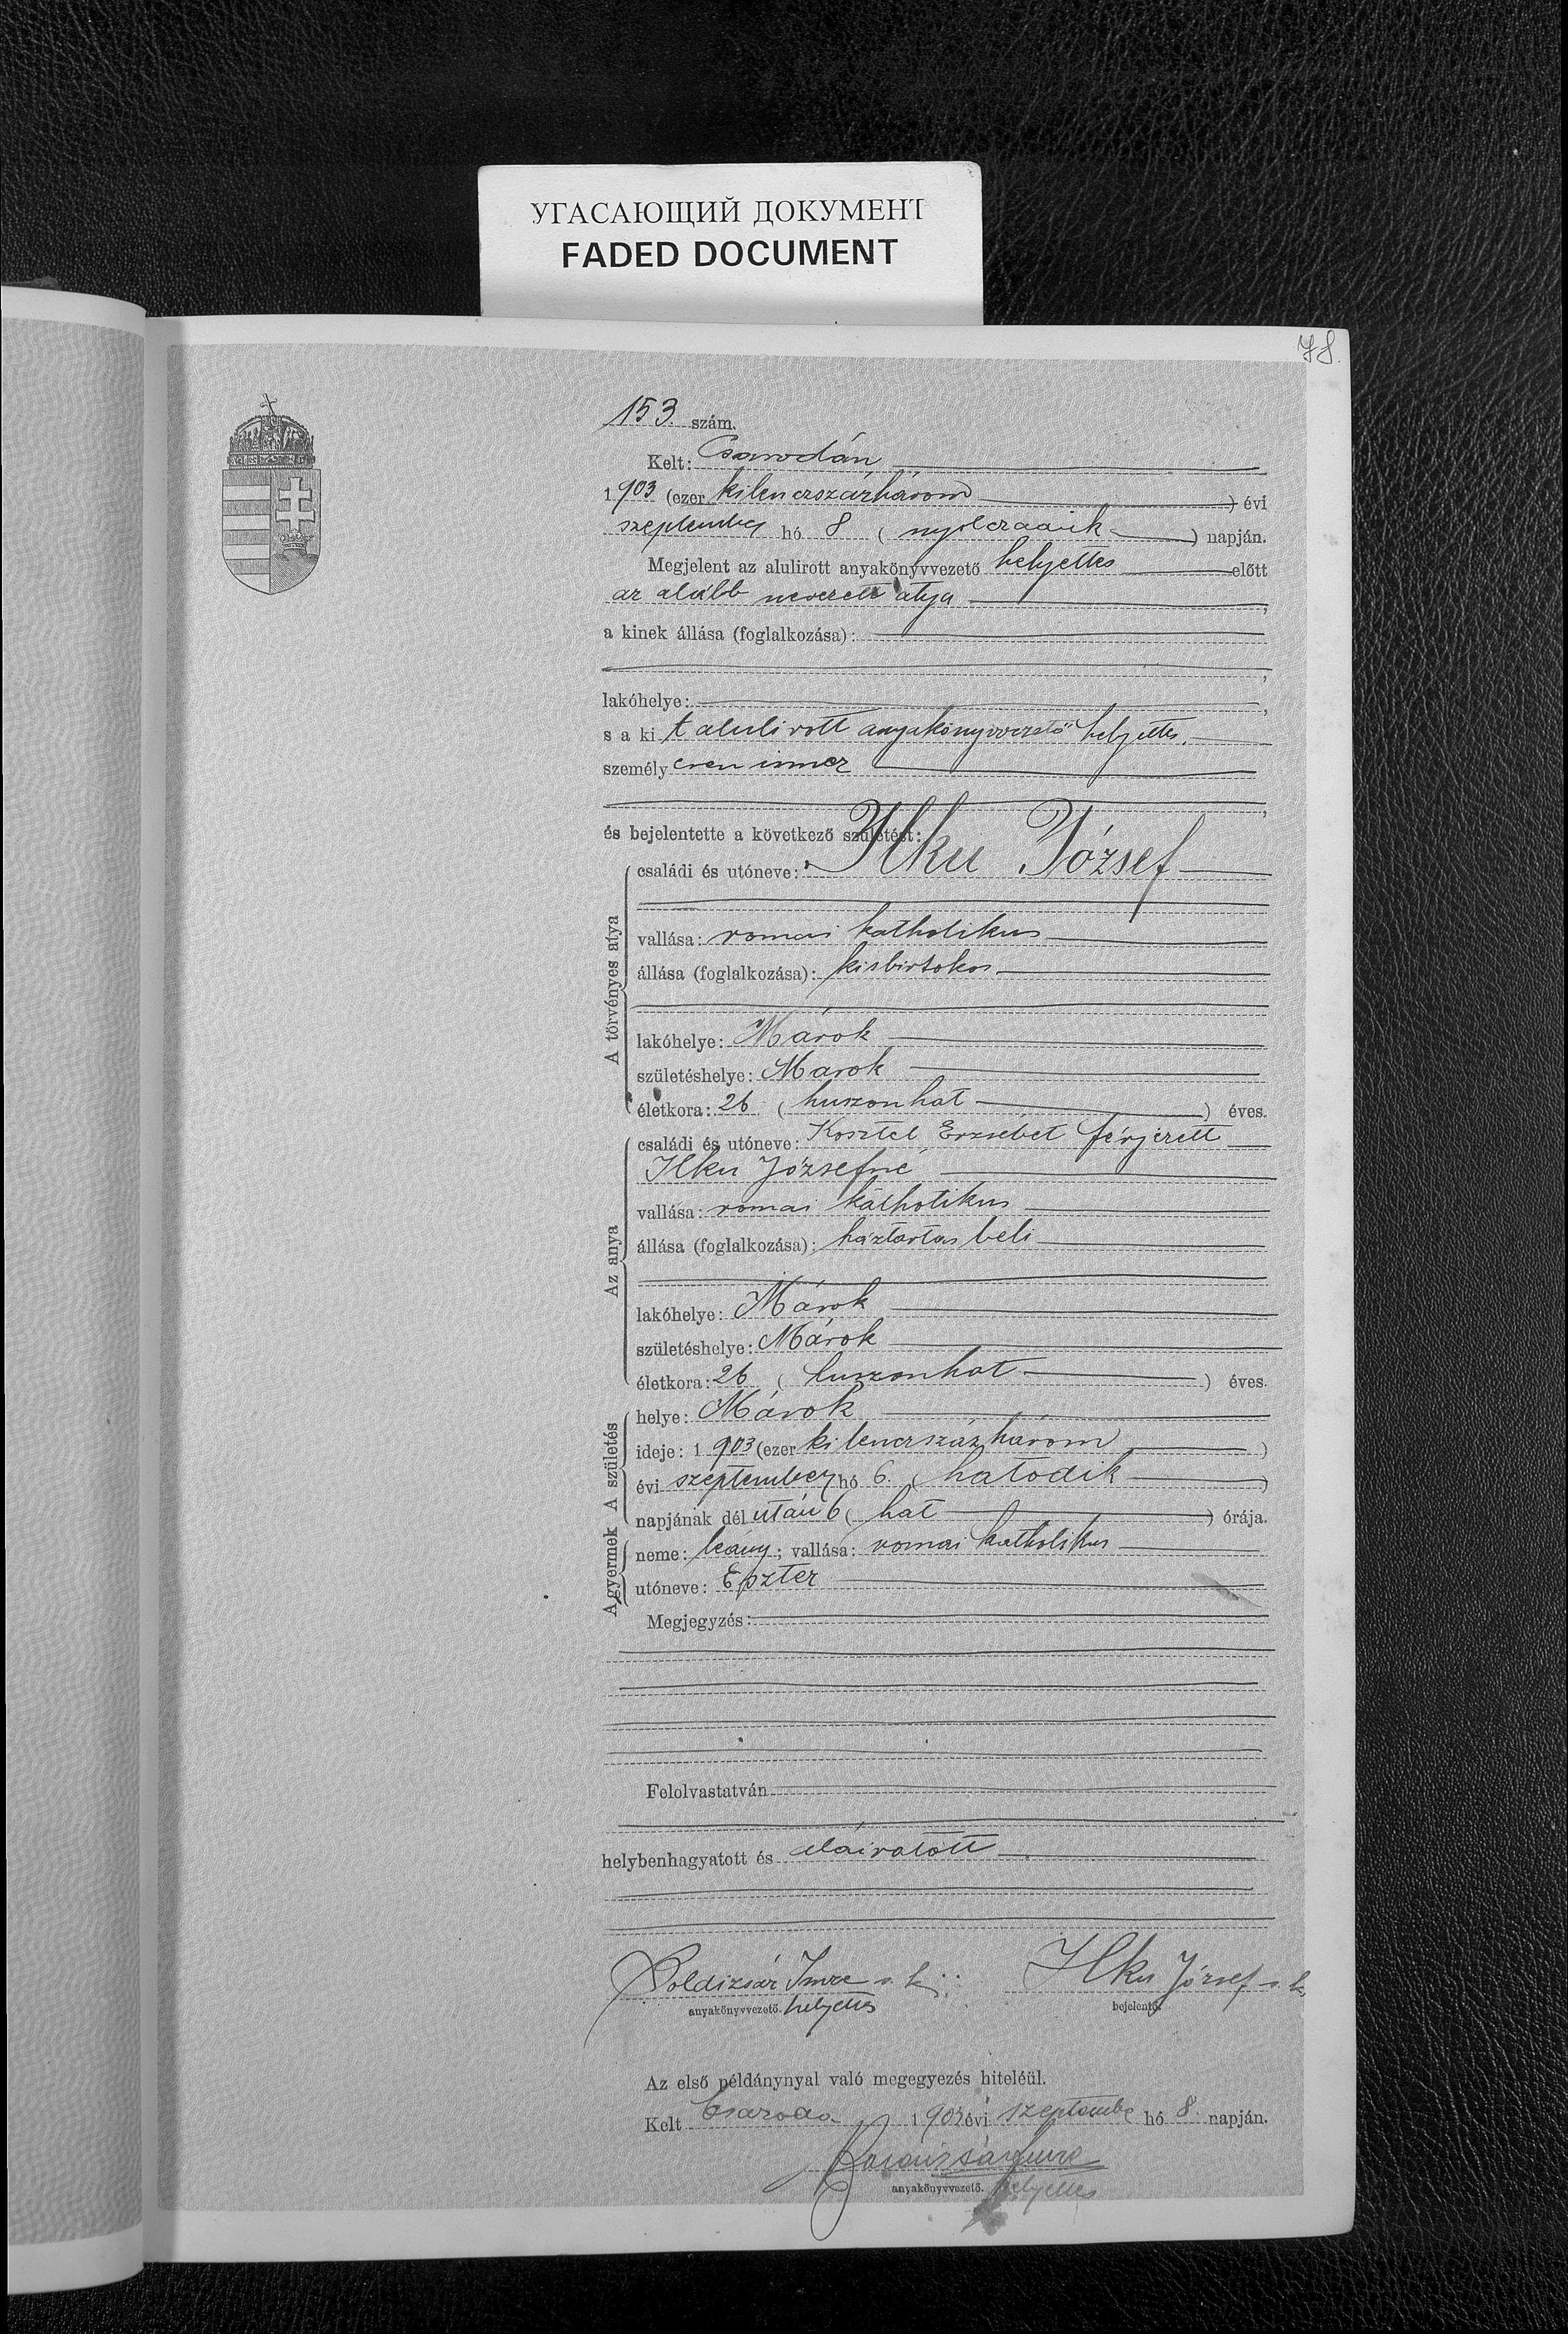 УГАСАЮЩИЙ ДОКУМЕНТ
FADED DOCUMENT
78.
153. szám.
Kelt: Csarodán
1 903 (ezer kilenczszázhárom ) évi
szeptember hó 8 ( nyolczadik ) napján.
Megjelent az alulirott anyakönyvvezető helyettes előtt
az alább nevezett atya ,
a kinek állása (foglalkozása):
,
lakóhelye: ,
s a ki t alulirott anyakönyvvezető helyettes,
személy esen ismer
,
és bejelentette a következő születést:
A törvényes atya
családi és utóneve: Ilku József
vallása: romai katholikus
állása (foglalkozása): kisbirtokos
lakóhelye: Márok
születéshelye: Marok
életkora: 26 ( huszonhat ) éves.
Az anya
családi és utóneve: Kosztel Erzsébet férjezett
Ilku Józsefné
vallása: romai katholikus
állása (foglalkozása): háztartás beli
lakóhelye: Márok
születéshelye: Márok
életkora: 26 ( huszonhat ) éves.
A születés
helye: Márok
ideje: 1 903 (ezer kilenczszázhárom )
évi szeptember hó 6. ( hatodik )
napjának dél után 6 ( hat ) órája.
A gyermek
neme: leány; vallása: romai katholikus
utóneve: Eszter
Megjegyzés:
Felolvastatván
helybenhagyatott és aláiratott
Boldizsár Imre s. k. Ilku József s. k.
anyakönyvvezető. helyettes bejelentő.
Az első példánynyal való megegyezés hiteléül.
Kelt Csaroda 1 903 évi szeptember hó 8 napján.
Boldizsár Imre
anyakönyvvezető. helyettes